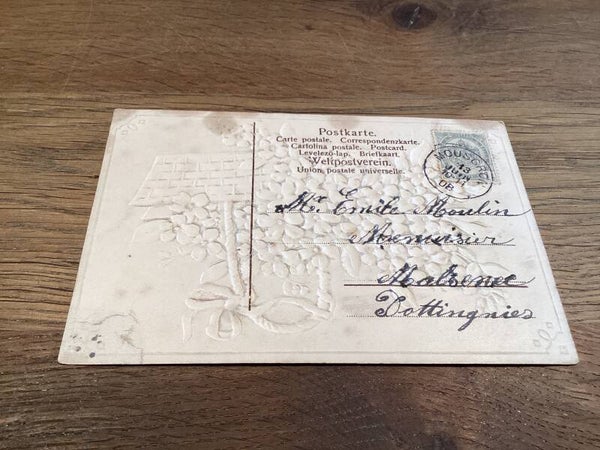 Postkarte.
Carte postale. Correspondenzkarte.
Cartolina postale. Postcard.
Levelező-lap. Briefkaart.
Weltpostverein.
Union postale universelle.
MOUSCRON
13
08
Mr. Emile Moulin
Menuisier
Dottingnies